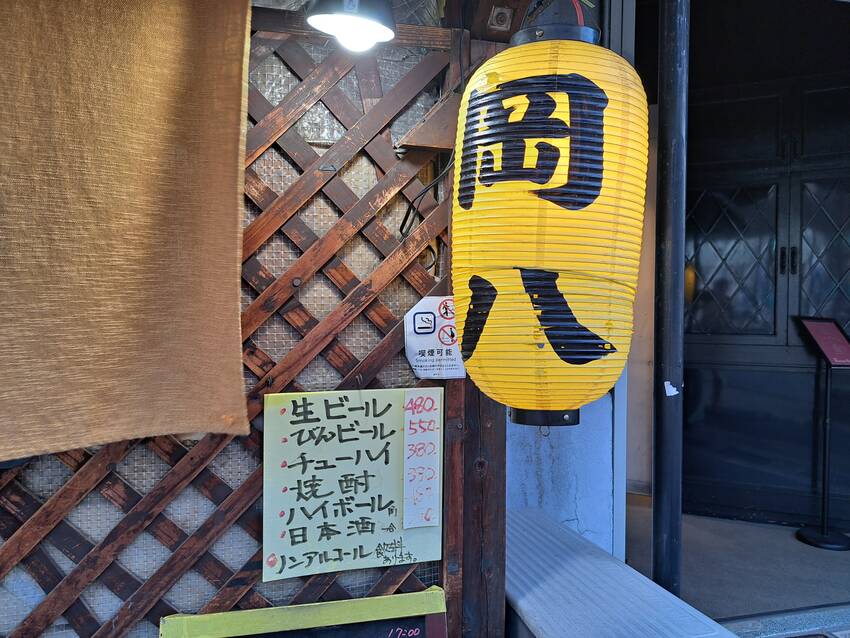 岡八
喫煙可能
Smoking permitted
生ビール 480-
びんビール 550-
チューハイ 380-
焼酎 390
ハイボール
日本酒 一合
ノンアルコール 飲料あります。
17:00